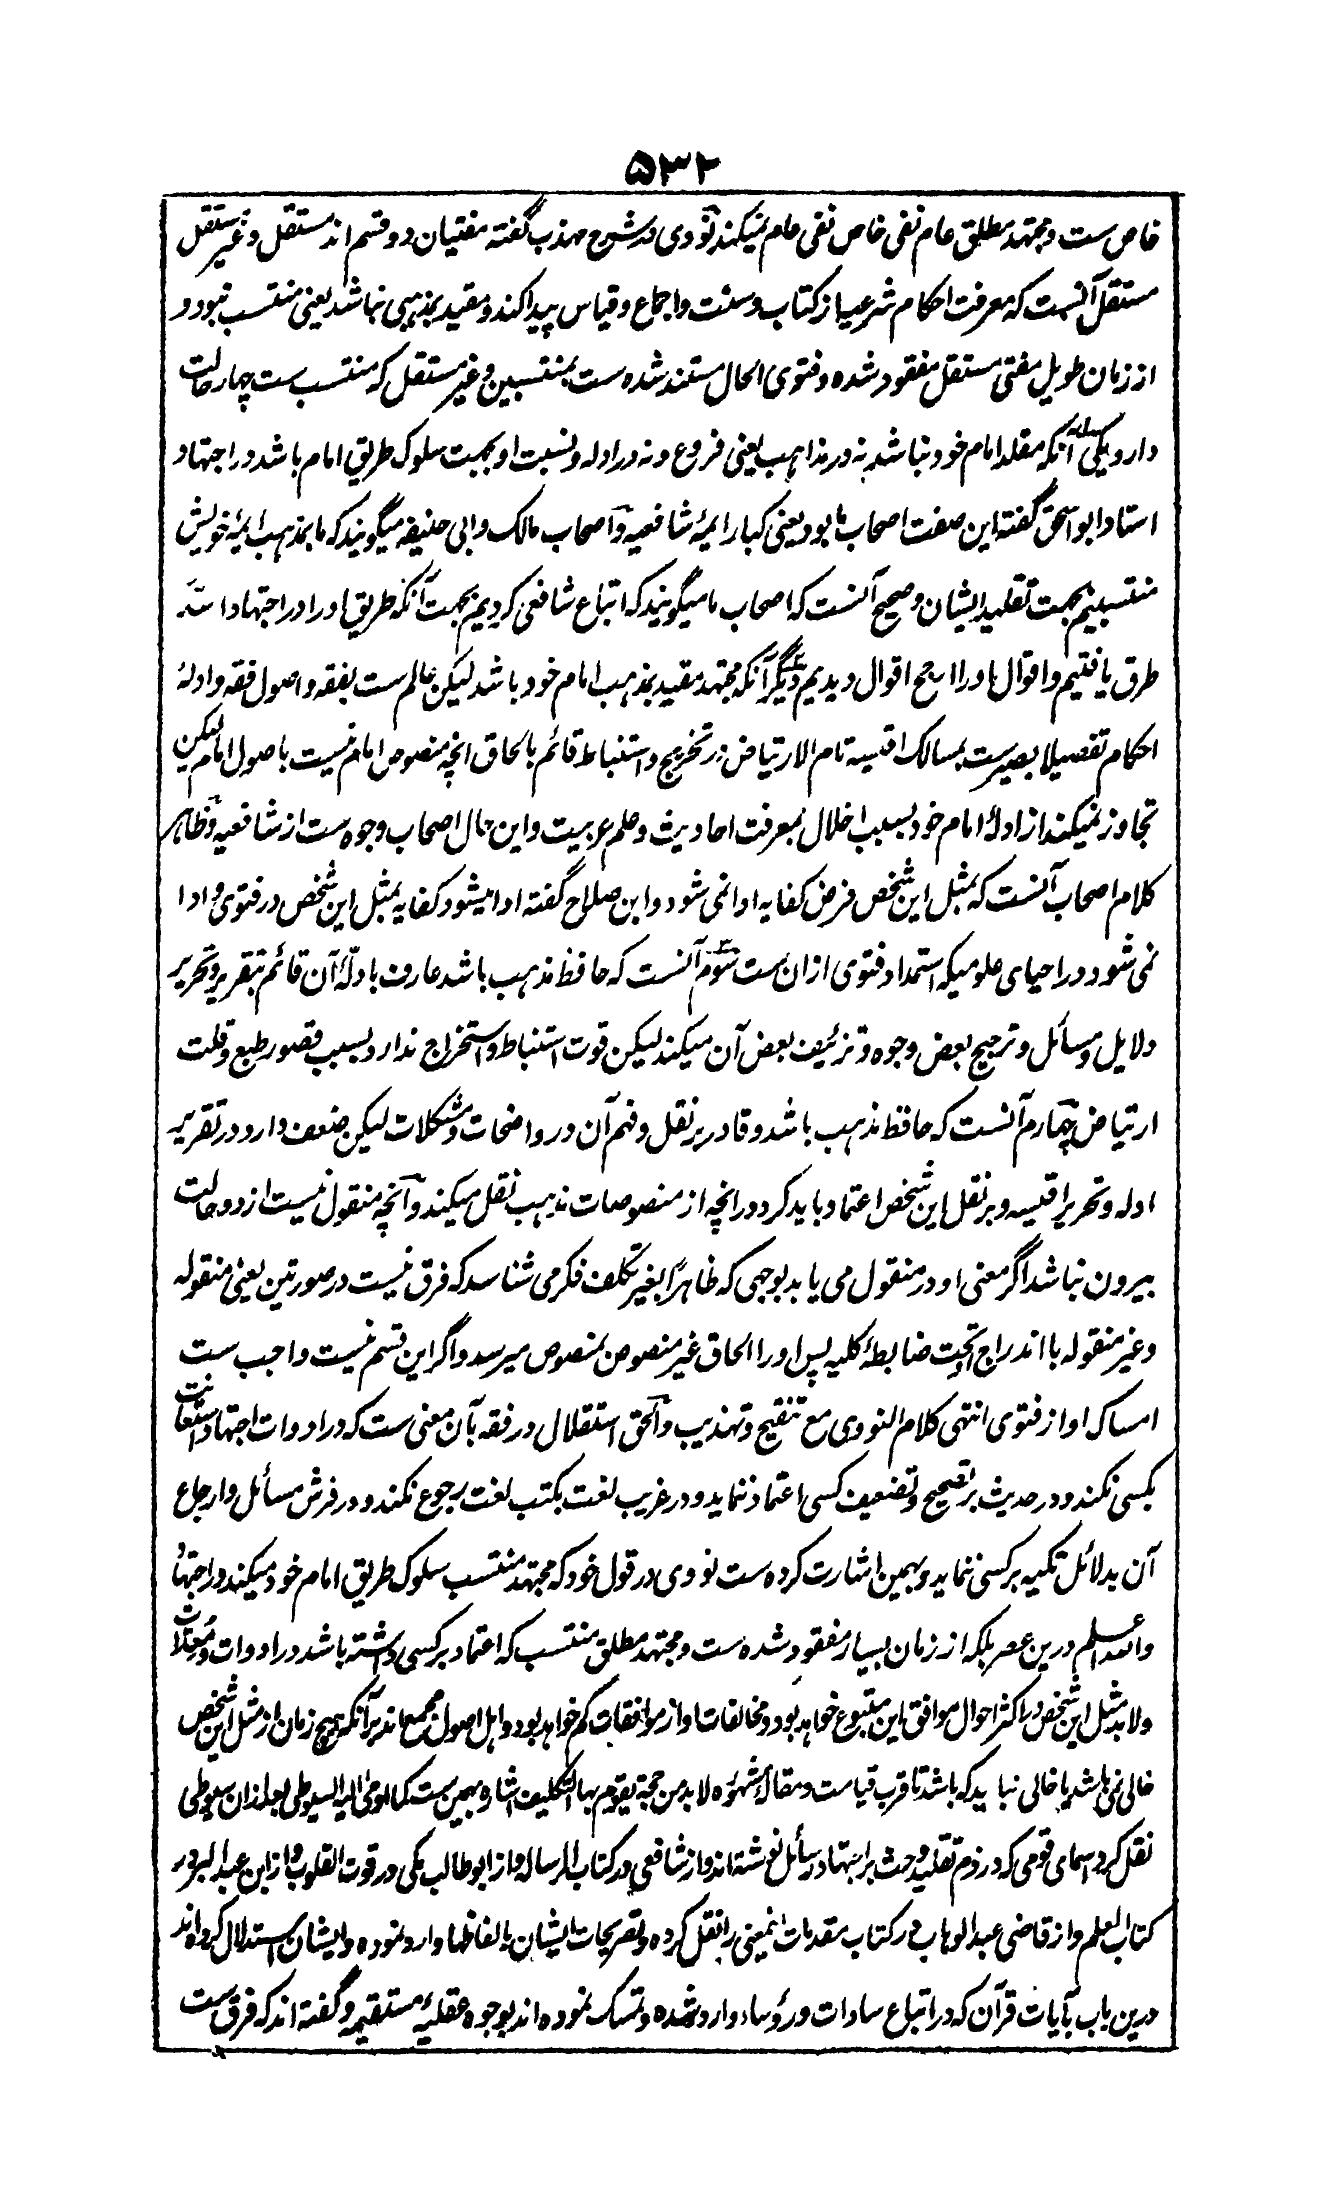 ۵۳۲
خاص ست و مجتهد مطلق عام نفی خاص نفی عام نمیکند نووی در شرح مهذب گفته مفتیان دو قسم اند مستقل و غیر مستقل
مستقل آنست که معرفت احکام شرعیه از کتاب و سنت و اجماع و قیاس پیدا کند و مقید بمذهبی نباشد یعنی منتسب نبود و
از زمان طویل مفتی مستقل مفقود شده و فتوی الحال مستند شده ست بمنتسبین و غیر مستقل که منتسب ست چهار حالت
دارد یکی آنکه مقلد امام خود نباشد نه در مذاهب یعنی فروع و نه در ادله و نسبت او بجهت سلوک طریق امام باشد در اجتهاد
استاد ابو اسحق گفته این صفت اصحاب ما بود یعنی کبار ایمهٔ شافعیه و اصحاب مالک و ابی حنیفه میگویند که ما بمذهب ایمهٔ خویش
منتسبیم بجهت تقلید ایشان و صحیح آنست که اصحاب ما میگویند که اتباع شافعی کردیم بجهت آنکه طریق او را در اجتهاد اسد
طرق یافتیم و اقوال او را ارجح اقوال دیدیم دیگر آنکه مجتهد مقید بمذهب امام خود باشد لیکن عالم ست بفقه و اصول فقه و ادلهٔ
احکام تفصیلا بصیرست بمسالک اقیسه تام الارتیاض در تخریج و استنباط قائم بالحاق انچه منصوص امام نیست باصول امام لیکن
تجاوز نمیکند از ادلهٔ امام خود بسبب اخلال بمعرفت احادیث و علم عربیت و این حال اصحاب وجوه ست از شافعیه و ظاهر
کلام اصحاب آنست که بمثل این شخص فرض کفایه ادا نمی شود و ابن صلاح گفته ادا میشود کفایه بمثل این شخص در فتوی و ادا
نمی شود در احیای علومیکه استمداد فتوی ازان ست سوم آنست که حافظ مذهب باشد عارف بادلهٔ آن قائم بتقریر و تحریر
دلایل و مسائل و ترجیح بعض وجوه و تزئیف بعض آن میکند لیکن قوت استنباط و استخراج ندارد بسبب قصور طبع و قلت
ارتیاض چهارم آنست که حافظ مذهب باشد و قادر بر نقل و فهم آن در واضحات و مشکلات لیکن ضعف دارد در تقریر
ادله و تحریر اقیسه و بر نقل این شخص اعتماد باید کرد در انچه از منصوصات مذهب نقل میکند و آنچه منقول نیست از دو حالت
بیرون نباشد اگر معنی او در منقول می یابد بوجهی که ظاهرًا بغیر تکلف فکر می شناسد که فرق نیست در صورتین یعنی منقوله
و غیر منقوله با اندراج تحت ضابطهٔ کلیه پس او را الحاق غیر منصوص بمنصوص میرسد و اگر این قسم نیست واجب ست
امساک او از فتوی انتهی کلام النووی مع تنقیح و تهذیب و الحق استقلال در فقه بآن معنی ست که در ادوات اجتهاد استعانت
بکسی نکند و در حدیث بر تصحیح و تضعیف کسی اعتماد ننماید و در غریب لغت بکتب لغت رجوع نکند و در فرش مسائل و ارجاع
آن بدلائل تکیه بر کسی ننماید و بهمین اشارت کرده ست نووی در قول خود که مجتهد منتسب سلوک طریق امام خود میکند در اجتهاد
والله اعلم درین عصر بلکه از زمان بسیار مفقود شده ست و مجتهد مطلق منتسب که اعتماد بر کسی داشته باشد در ادوات و
ولابد مثل این شخص در اکثر احوال موافق این متبوع خواهد بود و مخالفات او از موافقات کم خواهد بود و اهل اصول مجمع اند بر آنکه هیچ زمان از مثل این شخص
خالی نمی باشد یا خالی نباید که باشد تا قرب قیامت و مقالهٔ مشهوره لا بد من حجة یقوم بها التکلیف اشاره بهمین ست کما اومی الیه السیوطی بعد ازان سیوطی
نقل کرد اسمای قومی که در ذم تقلید و حث بر اجتهاد رسائل نوشته اند و از شافعی در کتاب الرساله و از ابو طالب مکی در قوت القلوب و از ابن عبد البر در
کتاب العلم و از قاضی عبد الوهاب در کتاب مقدمات اینمعنی را نقل کرده و تصریحات ایشان بالفاظها وارد نموده و ایشان استدلال کرده اند
درین باب بآیات قرآن که در اتباع سادات و رؤساء وارد شده و تمسک نموده اند بوجوه عقلیهٔ مستقیمه و گفته اند که فرق ست